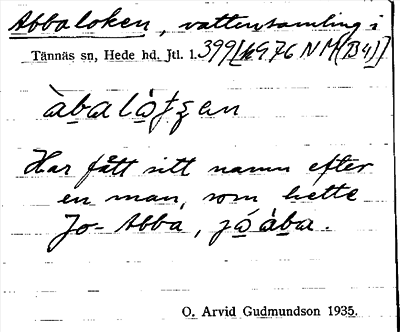 Abbaloken, vattensamling i
Tännäs sn, Hede hd. Jtl. l. 399[k976 NM(B4)]
àbalòtʒen
Har fått sitt namn efter
en man, som hette
Jo-Abba,
O. Arvid Gudmundson 1935.